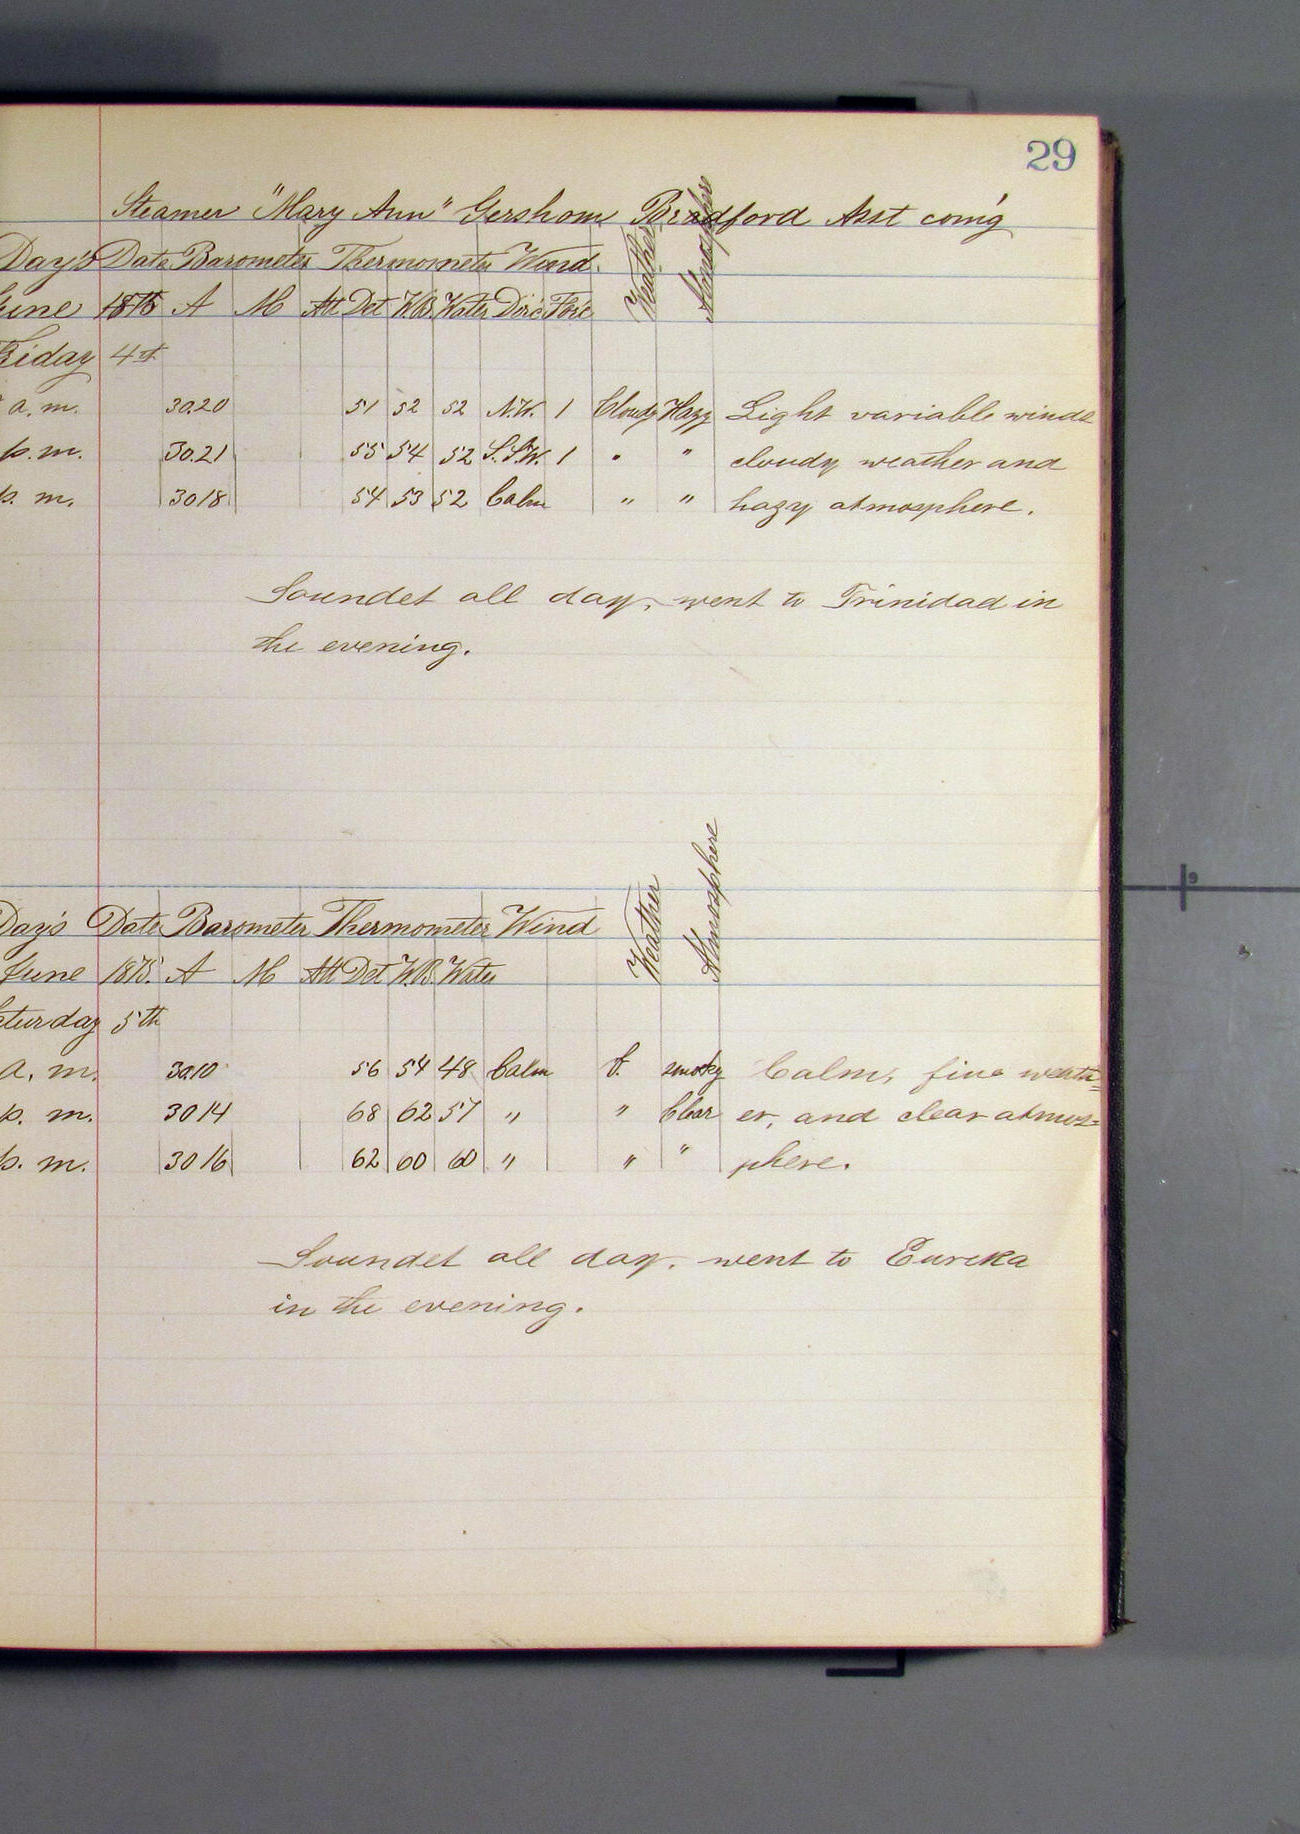 29
Steamer "Mary Ann" Gershom Bradford Asst com'g
Day's Date Barometer Thermometer Wind Weather Atmosphere
June 1875 A M Att Det W.B. Water Direc Forc
Friday 4th
a. m. 30.20 51 52 52 N.W. 1 Cloudy Hazy Light variable winds
p. m. 30.21 55 54 52 S.S.W. 1 " " cloudy weather and
p. m. 30 18 54 53 52 Calm " " hazy atmosphere.
Soundet all day, went to Trinidad in
the evening.
Day's Date Barometer Thermometer Wind Weather Atmosphere
June 1875. A M Att Det W.B. Water
Saturday 5th
a. m. 30.10 56 54 48 Calm f. smoky Calm, fine weath=
p. m. 30 14 68 62 57 " " Clear er, and clear atmos=
p. m. 30 16 62 60 60 " " " phere.
Soundet all day, went to Eureka
in the evening.